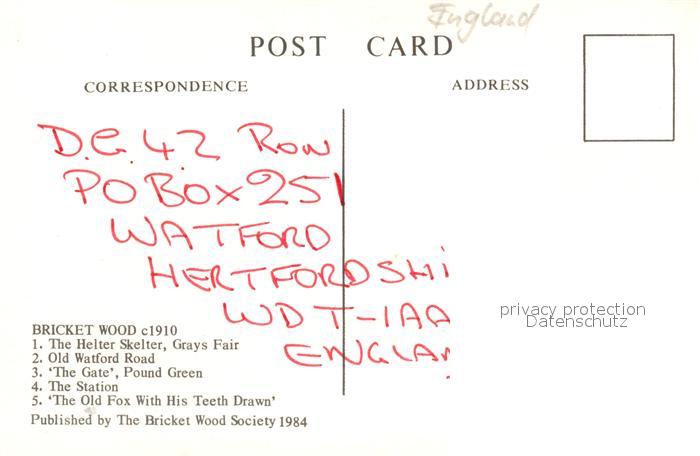 England
POST CARD
CORRESPONDENCE
ADDRESS
D.G. 42 Row
PO Box 251
WATFORD
HERTFORDSHI
WDT-1AA
ENGLA
privacy protection
Datenschutz
BRICKET WOOD c1910
1. The Helter Skelter, Grays Fair
2. Old Watford Road
3. ‘The Gate’, Pound Green
4. The Station
5. ‘The Old Fox With His Teeth Drawn’
Published by The Bricket Wood Society 1984